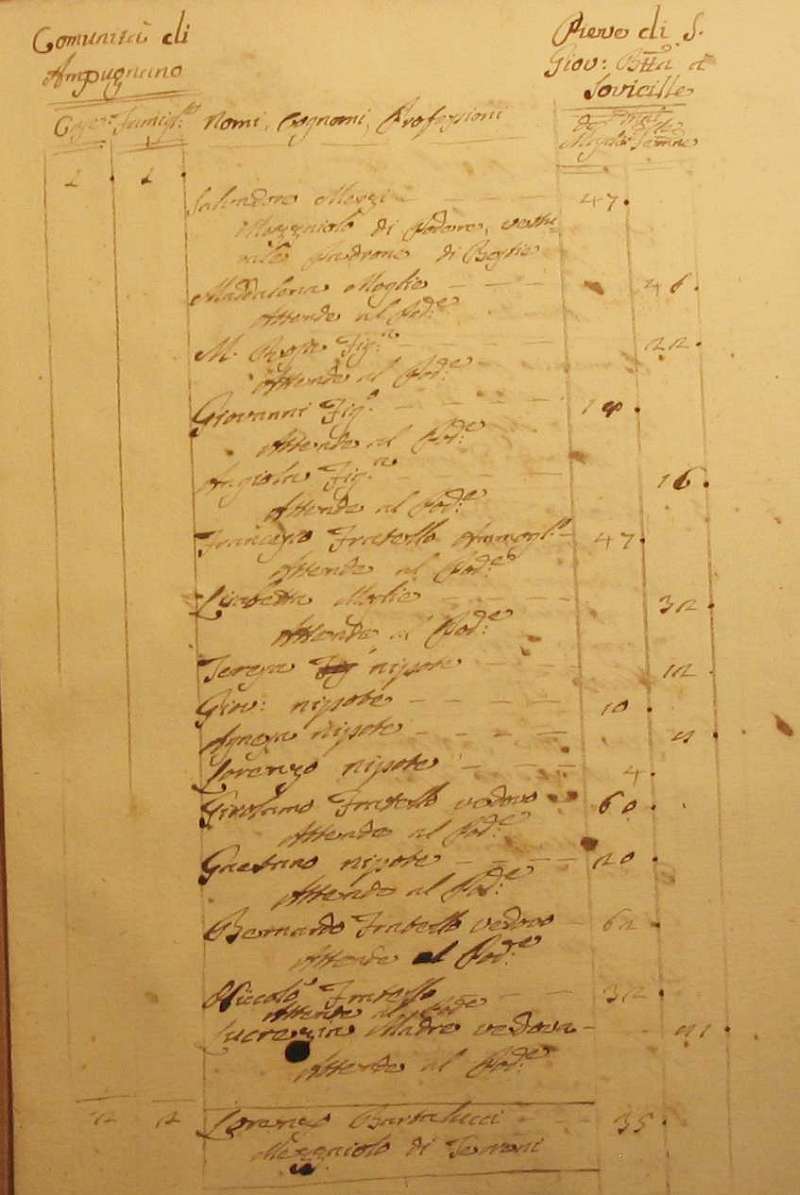 Comunità di
Ampugnano
Pieve di S.
Giov: Btta a
Sovicille
Case Famigl: Nomi, Cognomi, Professioni
Maschi Femine
1 1
Salvadore 47.
Mezzaiolo di Podere,
Padrone di Bestie
Maddalena Moglie 46.
Attende al Pod:e
M. Rosa Fig:a 22.
Attende al Pod:e
Giovanni Fig:o
Attende al Pod:e
Angiola Fig:a 16.
Attende al Pod:e
Francesco Fratello Ammogl:o 47.
Attende al Pod:e
Lisabetta Moglie 32.
Attende al Pod:e
Teresa nipote 12.
Giov: nipote 10.
Agnesa nipote
Lorenzo nipote 4.
Girolamo Fratello vedovo 60.
Attende al Pod:e
Gaetano nipote 20.
Attende al Pod:e
Bernardo Fratello vedovo 62.
Attende al Pod:e
Niccolò Fratello 32.
Attende al Pode
Lucrezia Madre vedova
Attende al Pod:e
2 2 Lorenzo Bartalucci 35.
Mezzaiolo di Terreni